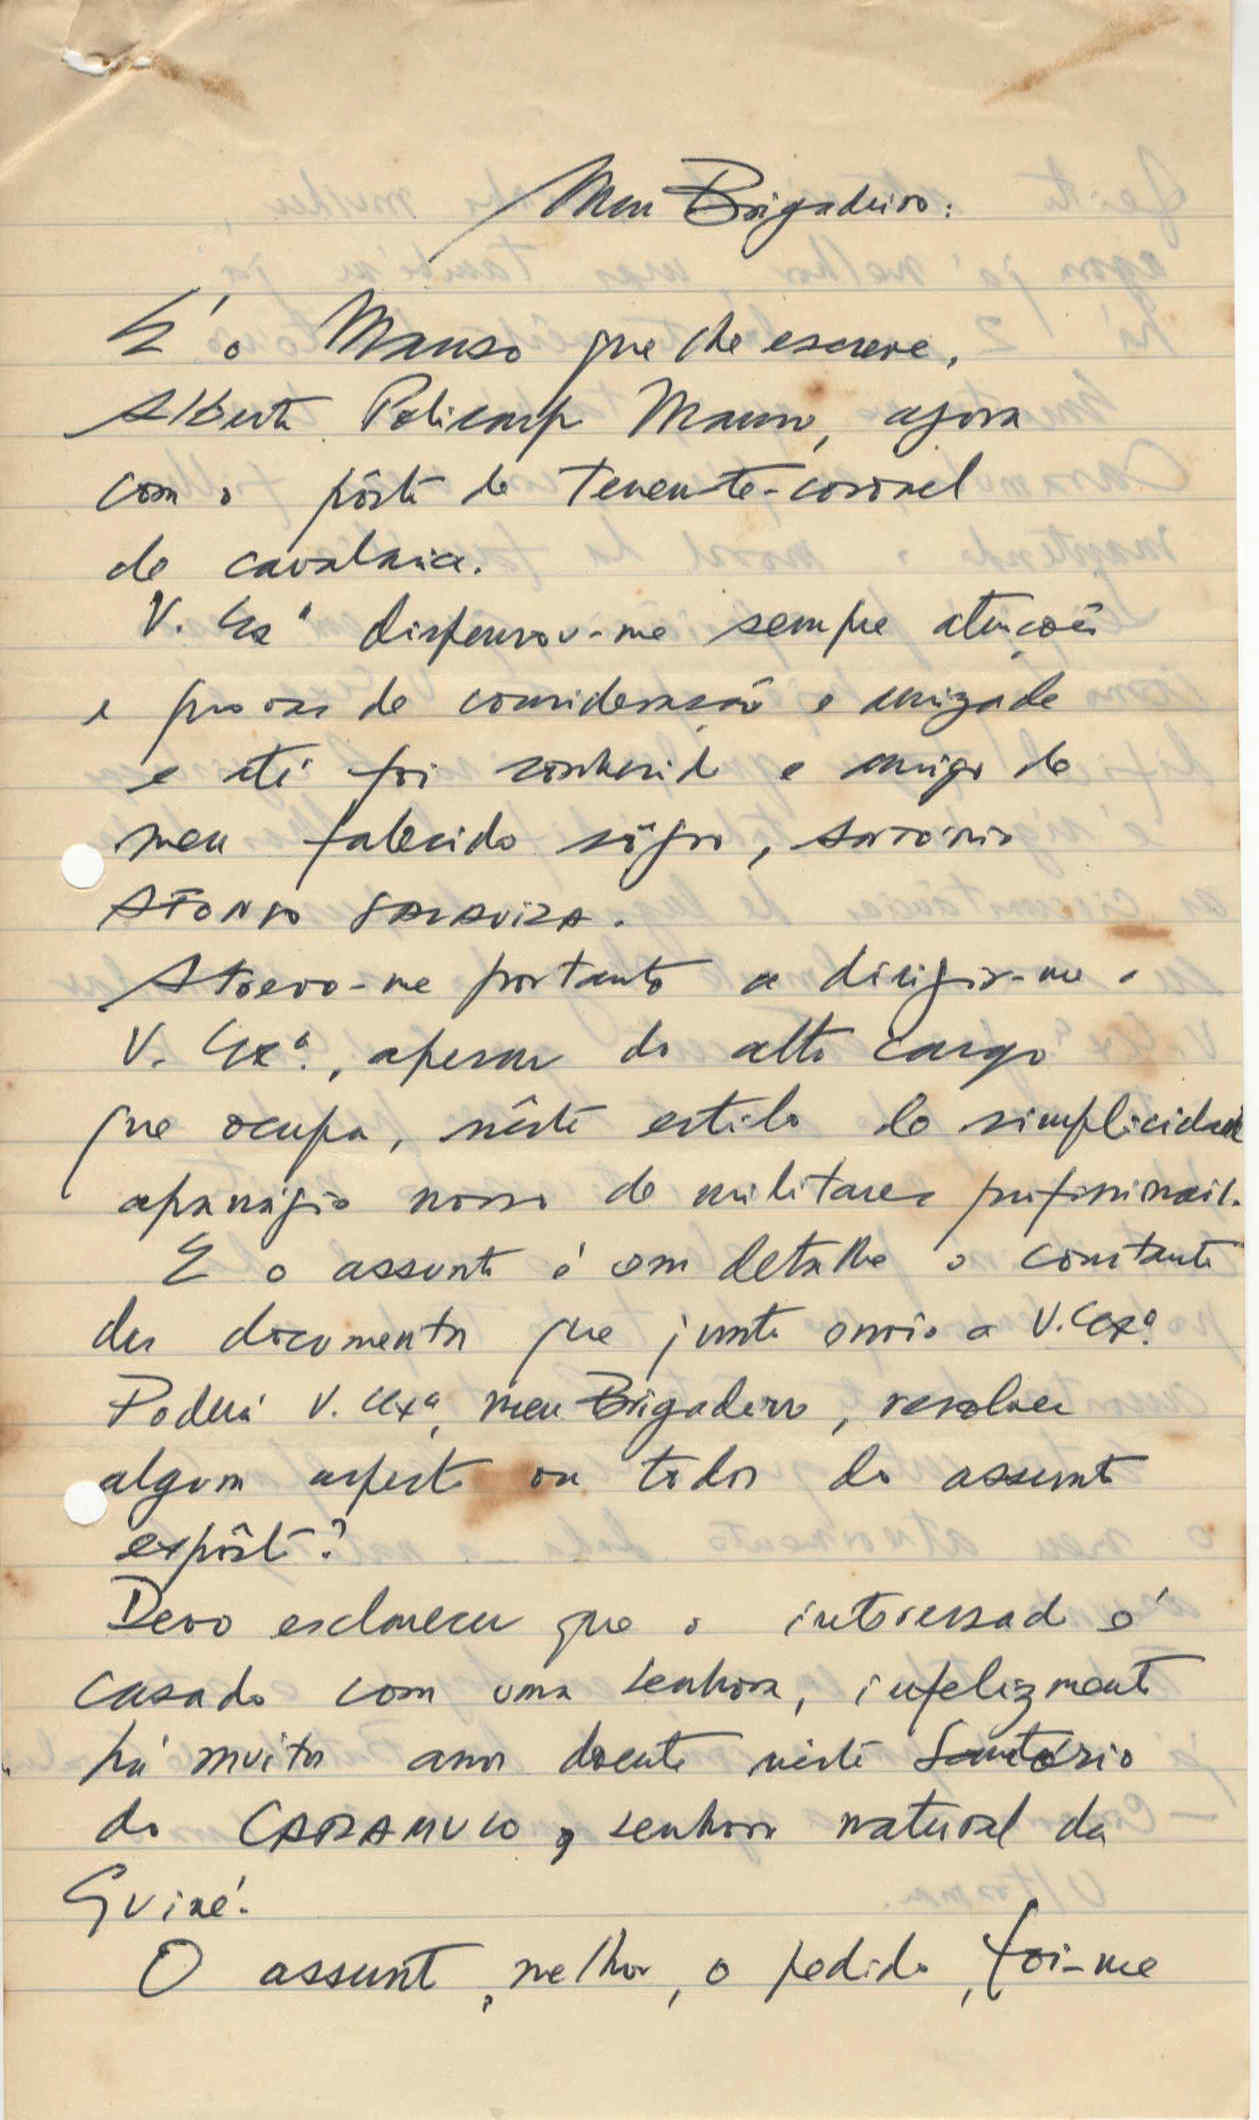 Meu Brigadeiro:
É o Manso que lhe escreve,
Alberto Policarpo Manso, agora
com o pôsto de Tenente-coronel
de cavalaria.
V. Exª dispensou-me sempre atenções
e provas de consideração e amizade
e até foi conhecido e amigo de
meu falecido sôgro,
AFONSO SARAIVA.
Atrevo-me portanto a dirigir-me a
V. Exª., apesar do alto cargo
que ocupa, nêste estilo de simplicidade
apanágio nosso de militares profissionais.
E o assunto é em detalhe o constante
dos documentos que junto envio a V. Exª
Poderá V. Exª, meu Brigadeiro, resolver
algum aspecto ou todos do assunto
expôsto?
Devo esclarecer que o interessado é
casado com uma senhora, infelizmente
há muitos anos doente nêste Sanatório
do CARAMULO, senhora natural da
Guiné.
O assunto, melhor, o pedido, foi-me